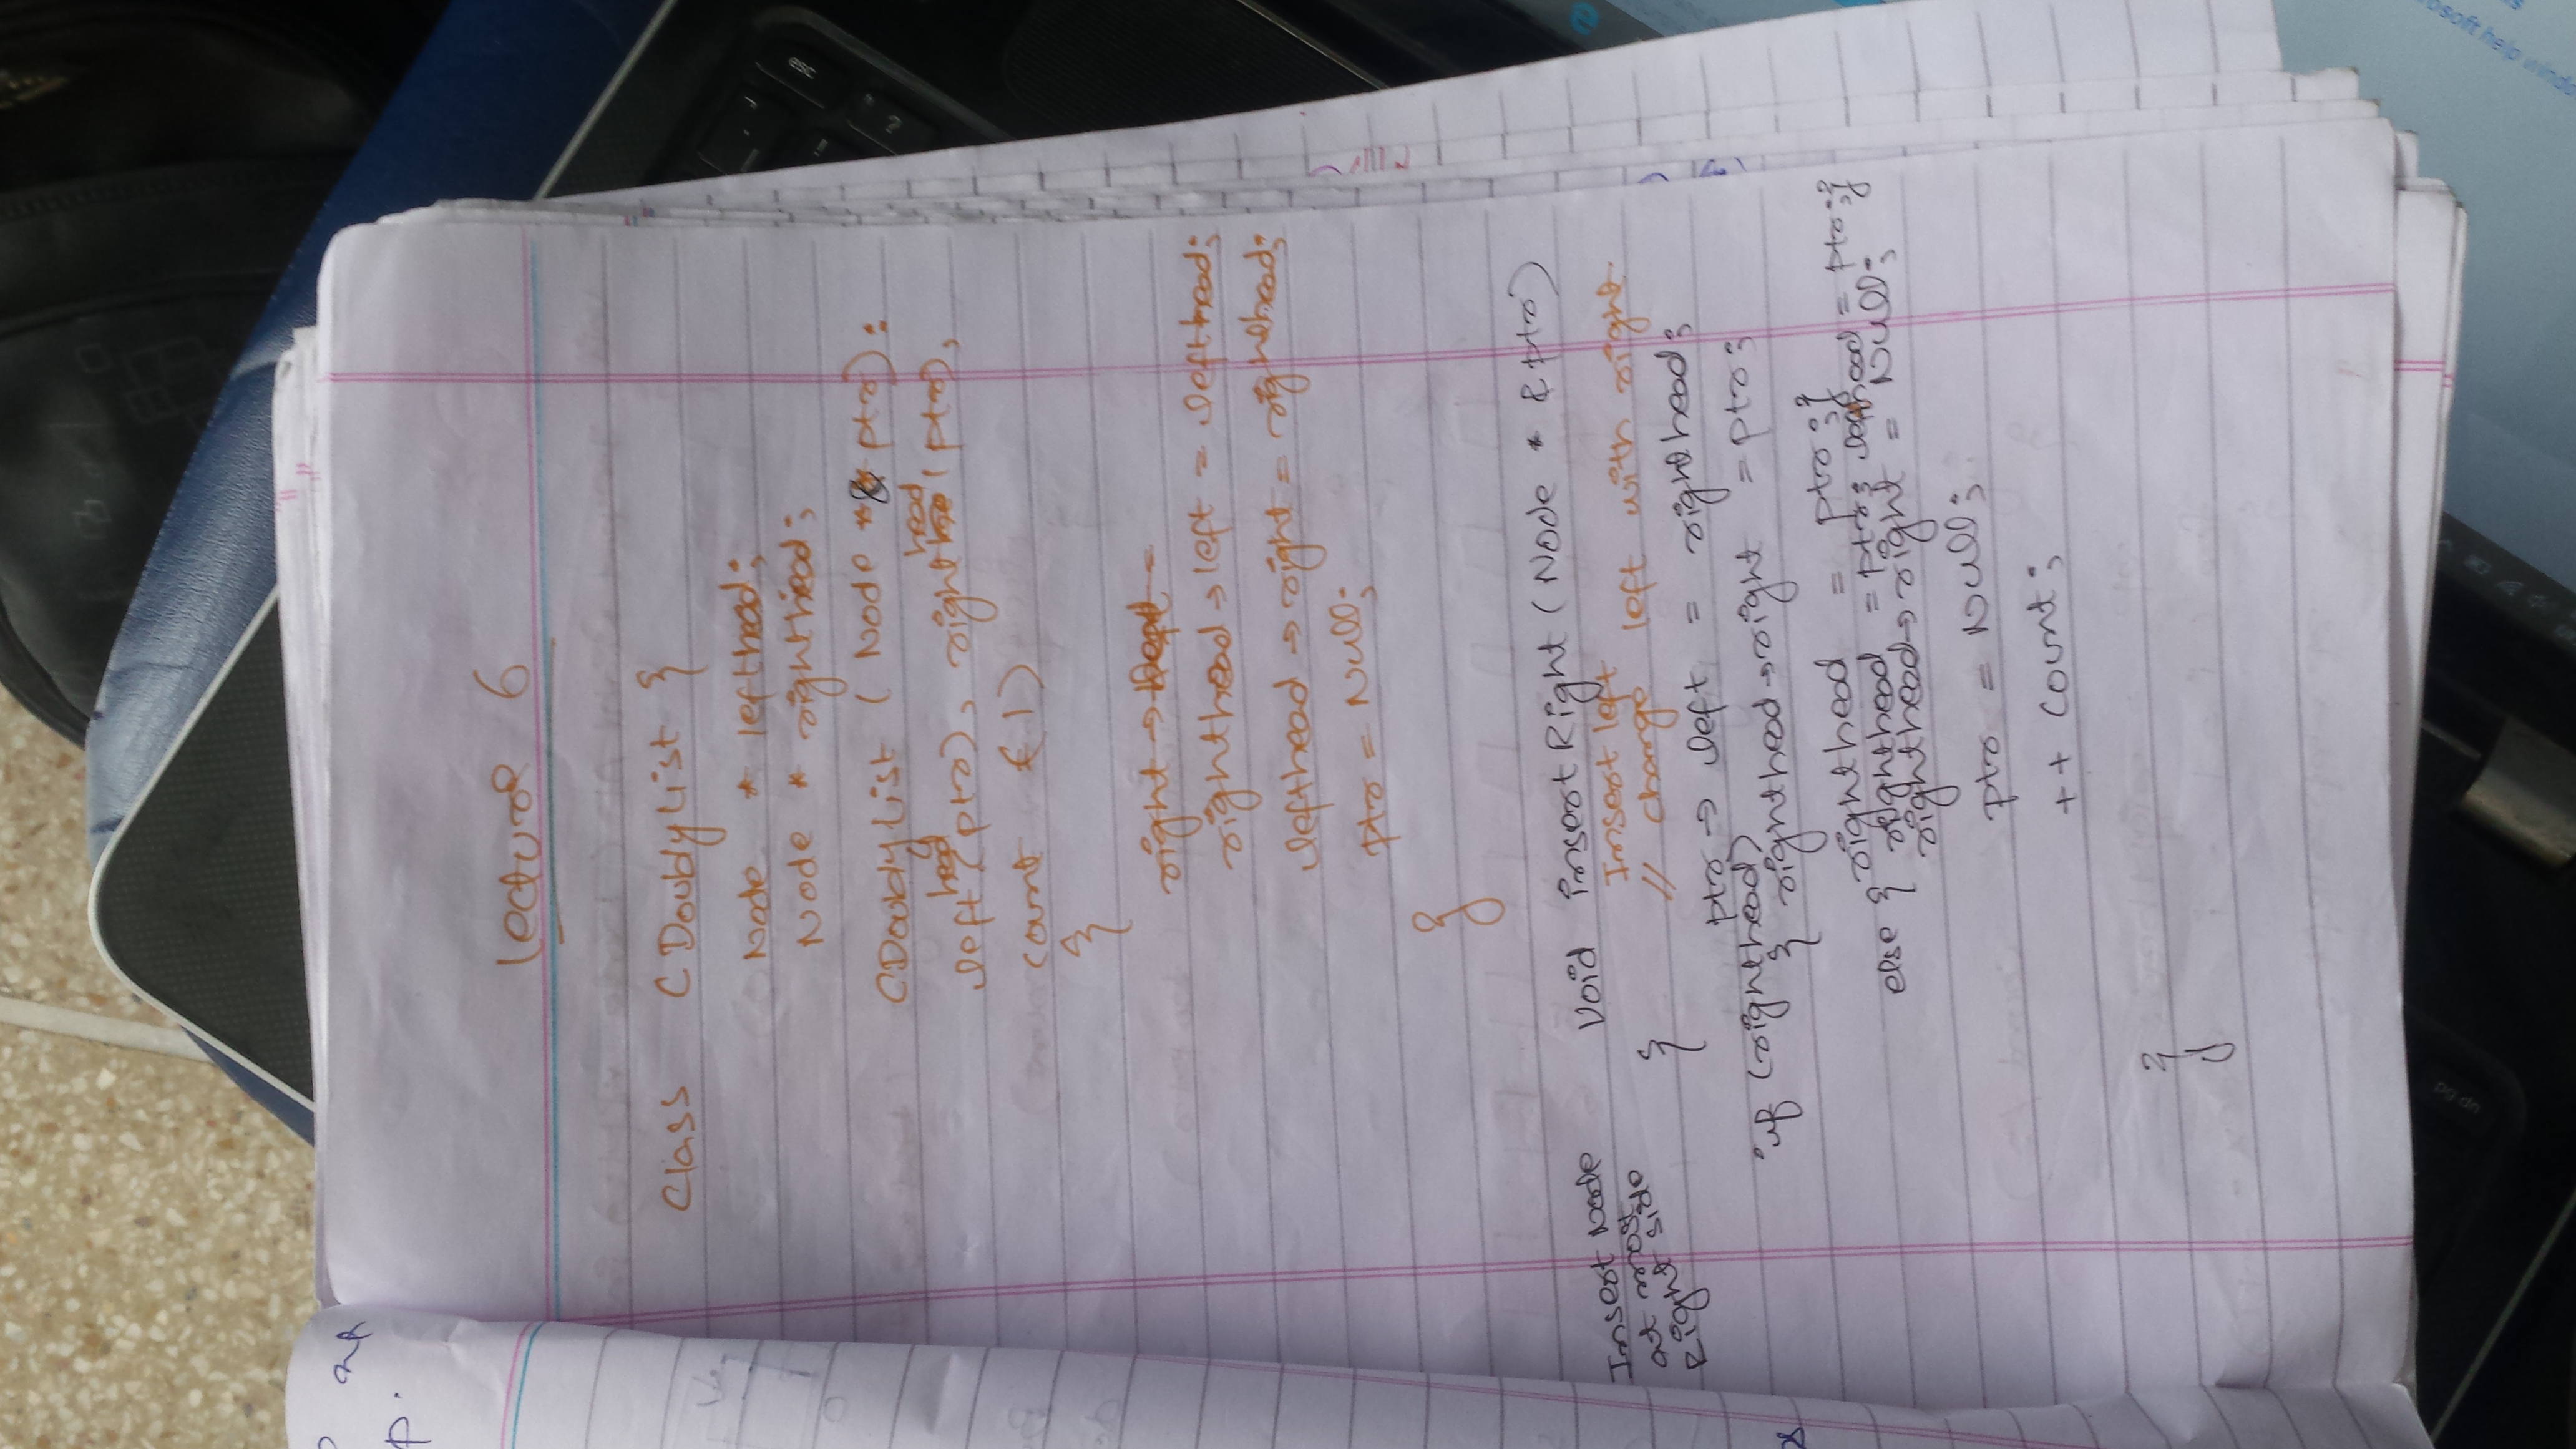 p.
lecture 6
Class CDoublyList {
Node * lefthead;
Node * righthead;
CDoublyList (Node *& ptr) :
lefthead (ptr), righthead (ptr),
count (1)
{
right →
righthead → left = lefthead;
lefthead → right = righthead;
ptr = Null;
}
Insert Node
at most
Right side
Void insertRight (Node * & ptr)
Insert left
{ // change left with right
ptr → left = righthead;
if (righthead)
{ righthead → right = ptr;
righthead = ptr ;}
else { righthead = ptr; lefthead = ptr ;}
righthead → right = Null;
ptr = Null;
++ count;
}
esc
pg dn